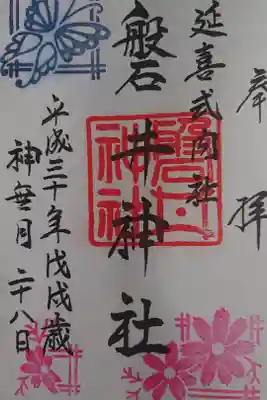 奉拝
延喜式内社
磐井神社
磐井神社
平成三十年戊戌歳
神無月二十八日